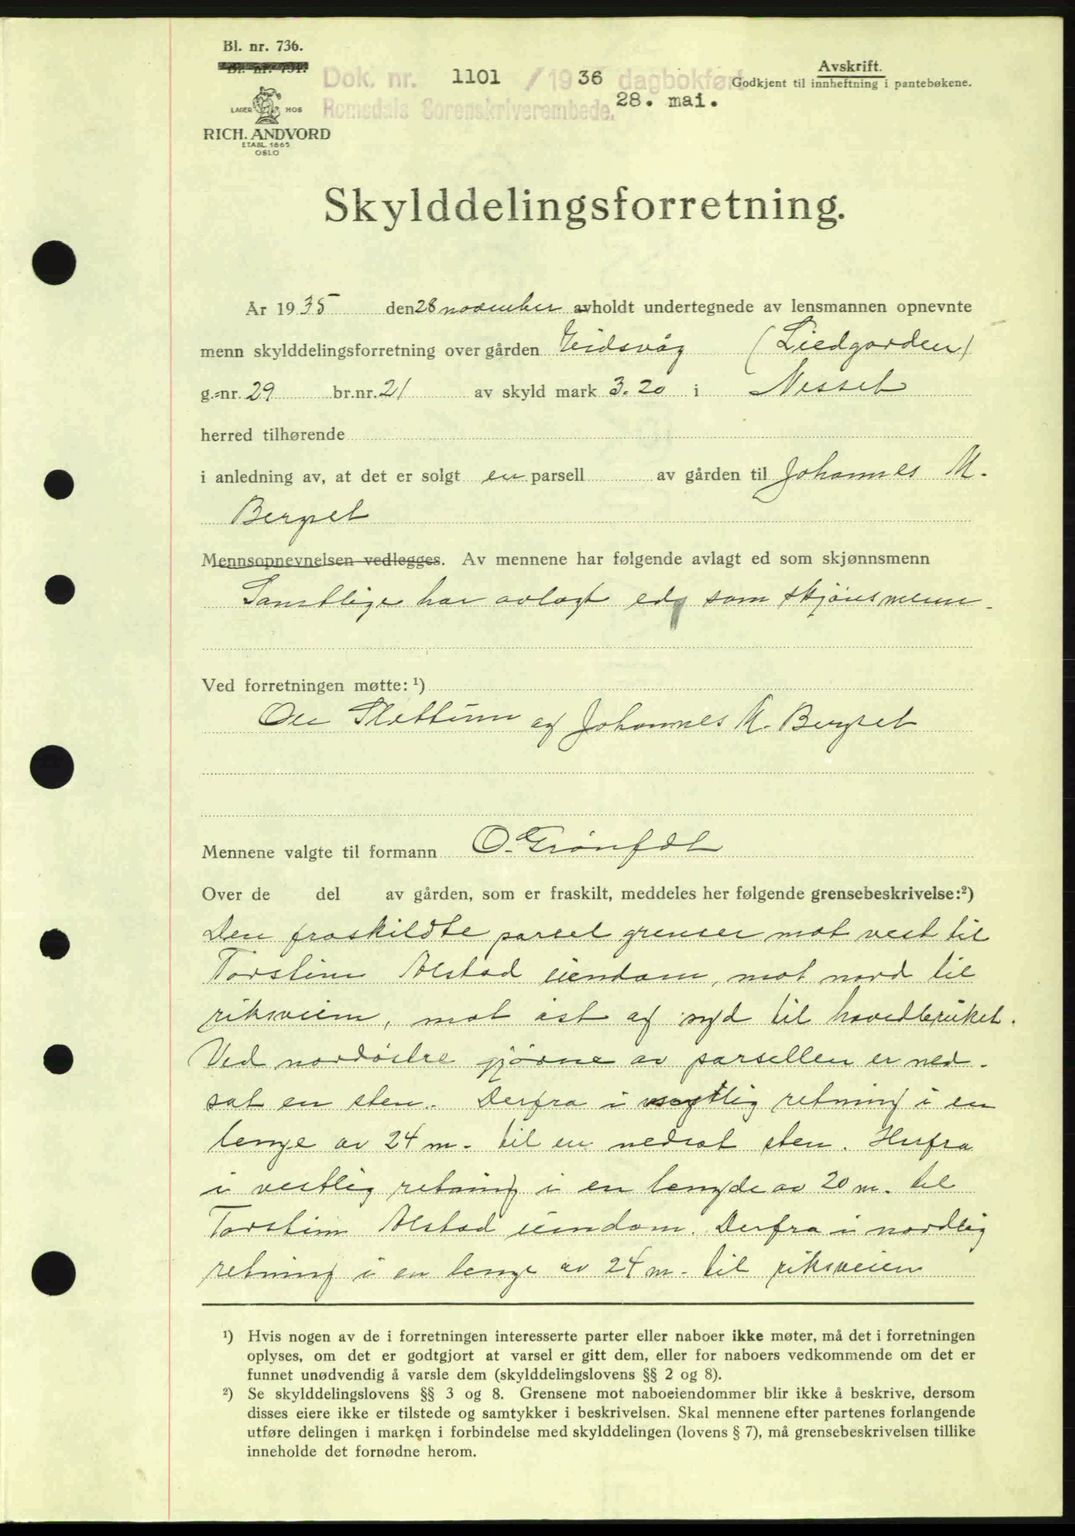 Bl. nr. 736.
Bl. nr. 731.
Dok. nr. 1101 / 1936 dagbokført
28. mai.
Romsdals Sorenskriverembede.
Avskrift.
Godkjent til innheftning i pantebøkene.
LAGER HOS
RICH. ANDVORD
ETABL. 1865
OSLO
Skylddelingsforretning.
År 1935 den 28 november avholdt undertegnede av lensmannen opnevnte
menn skylddelingsforretning over gården Eidsvåg (Liedgarden)
g.-nr. 29 br.nr. 21 av skyld mark 3.20 i Nesset
herred tilhørende
i anledning av, at det er solgt en parsell av gården til Johannes M.
Bergset
Mennsopnevnelsen vedlegges. Av mennene har følgende avlagt ed som skjønnsmenn
Samtlige har avlagt ed som skjønsmenn.
Ved forretningen møtte: ¹)
Ole Slettum og Johannes M. Bergset
Mennene valgte til formann O. Grønfdt
Over de del av gården, som er fraskilt, meddeles her følgende grensebeskrivelse:²)
Den fraskildte parsel grenser mot vest til
Torstein Alstad eiendom, mot nord til
riksveien, mot øst og syd til hovedbruket.
Ved nordøstre hjørne av parsellen er ned-
sat en sten. Derfra i sydlig retning i en
lengde av 24 m. til en nedsat sten. Herfra
i vestlig retning i en lengde av 20 m. til
Torstein Alstad eiendom. Derfra i nordlig
retning i en lenge av 24 m. til riksveien
¹) Hvis nogen av de i forretningen interesserte parter eller naboer ikke møter, må det i forretningen
oplyses, om det er godtgjort at varsel er gitt dem, eller for naboers vedkommende om det er
funnet unødvendig å varsle dem (skylddelingslovens §§ 2 og 8).
²) Se skylddelingslovens §§ 3 og 8. Grensene mot naboeiendommer blir ikke å beskrive, dersom
disses eiere ikke er tilstede og samtykker i beskrivelsen. Skal mennene efter partenes forlangende
utføre delingen i marken i forbindelse med skylddelingen (lovens § 7), må grensebeskrivelsen tillike
inneholde det fornødne herom.